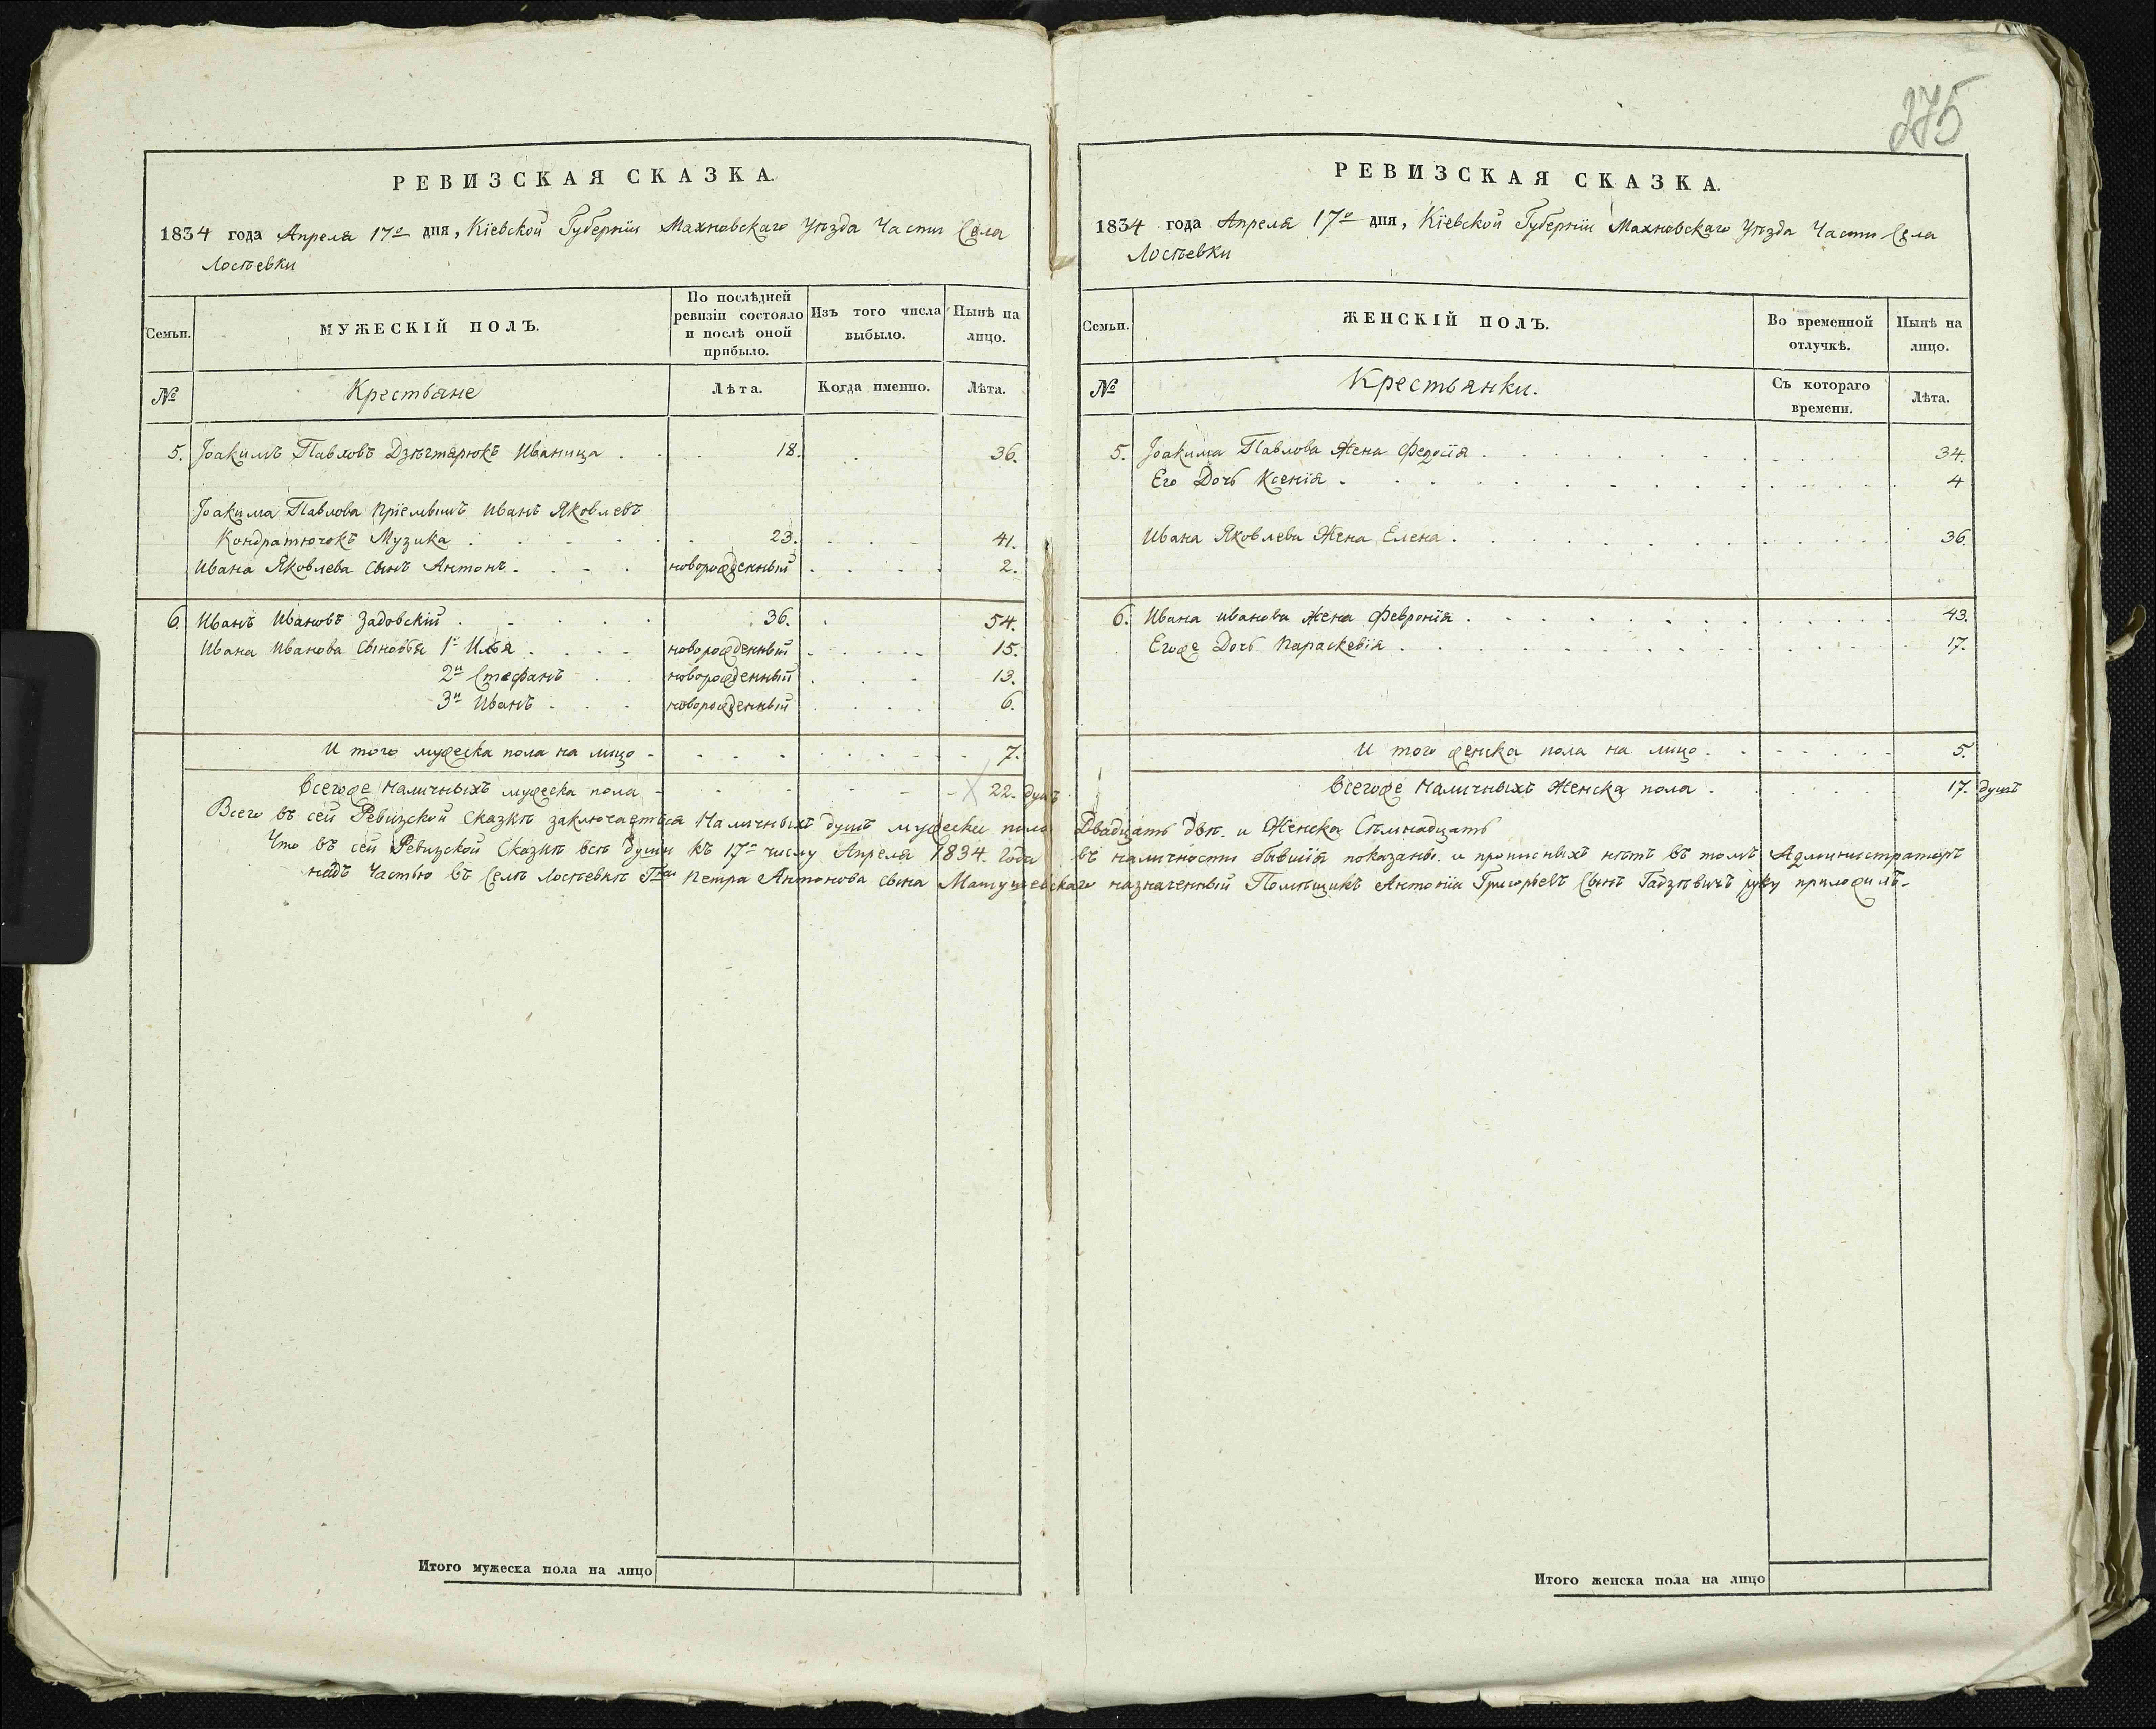 275
РЕВИЗСКАЯ СКАЗКА.
1834 года Апреля 17го дня, Кіевской Губерніи Махновскаго Уѣзда Части Села
Лосѣевки
Семьи.
МУЖЕСКІЙ ПОЛЪ.
По послѣдней ревизіи состояло и послѣ оной прибыло.
Изъ того числа выбыло.
Нынѣ на лицо.
№
Крестьяне
Лѣта.
Когда именно.
Лѣта.
5. Іоакимъ Павловъ Дзѣгтярюкъ Иваница . . . 18. . 36.
Іоакима Павлова пріемышъ Иванъ Яковлевъ
Кондратючокъ Музика . . . . . 23. . . . 41.
Ивана Яковлева сынъ Антонъ . . . . новорожденный . . . . 2.
6. Иванъ Ивановъ Задовскій . . . . . 36. . 54.
Ивана Иванова сыновья 1й Илья . . . . новорожденный . . . . 15.
2й Стефанъ . . новорожденный . . . 13.
3й Иванъ . . . новорожденный . . . . 6.
И того мужеска пола на лицо - - - - - - - - 7.
Всегоже Наличныхъ мужеска пола - - - - - - 22. душъ
РЕВИЗСКАЯ СКАЗКА.
1834 года Апреля 17го дня, Кіевской Губерніи Махновскаго Уѣзда Части Села
Лосѣевки
Семьи.
ЖЕНСКІЙ ПОЛЪ.
Во временной отлучкѣ.
Нынѣ на лицо.
№
Крестьянки.
Съ котораго времени.
Лѣта.
5. Іоакима Павлова Жена Федосія . . . . . . 34.
Его Дочь Ксенія . . . . . . 4
Ивана Яковлева Жена Елена . . . . . . 36.
6. Ивана Иванова Жена Февронія . . . . . . 43.
Егоже Дочь Параскевія . . . . . . 17.
И того женска пола на лицо . - - - - - 5.
Всегоже Наличныхъ Женска пола . . . . . . 17. душъ
Всего въ сей Ревизской Сказкѣ заключается Наличныхъ душъ мужеска пола Двадцать двѣ. и Женска Сѣмнадцать
Что въ сей Ревизской Сказкѣ всѣ души къ 17му числу Апреля 1834. Года въ наличности бывшія показаны. и прописныхъ нѣтъ въ томъ Администраторъ
надъ Частью въ Селѣ Лосѣевкѣ Гна Петра Антонова сына Матушевскаго назначенный Помѣщикъ Антоній Григорьевъ Сынъ Гадзѣвичъ руку приложилъ-
Итого мужеска пола на лицо
Итого женска пола на лицо